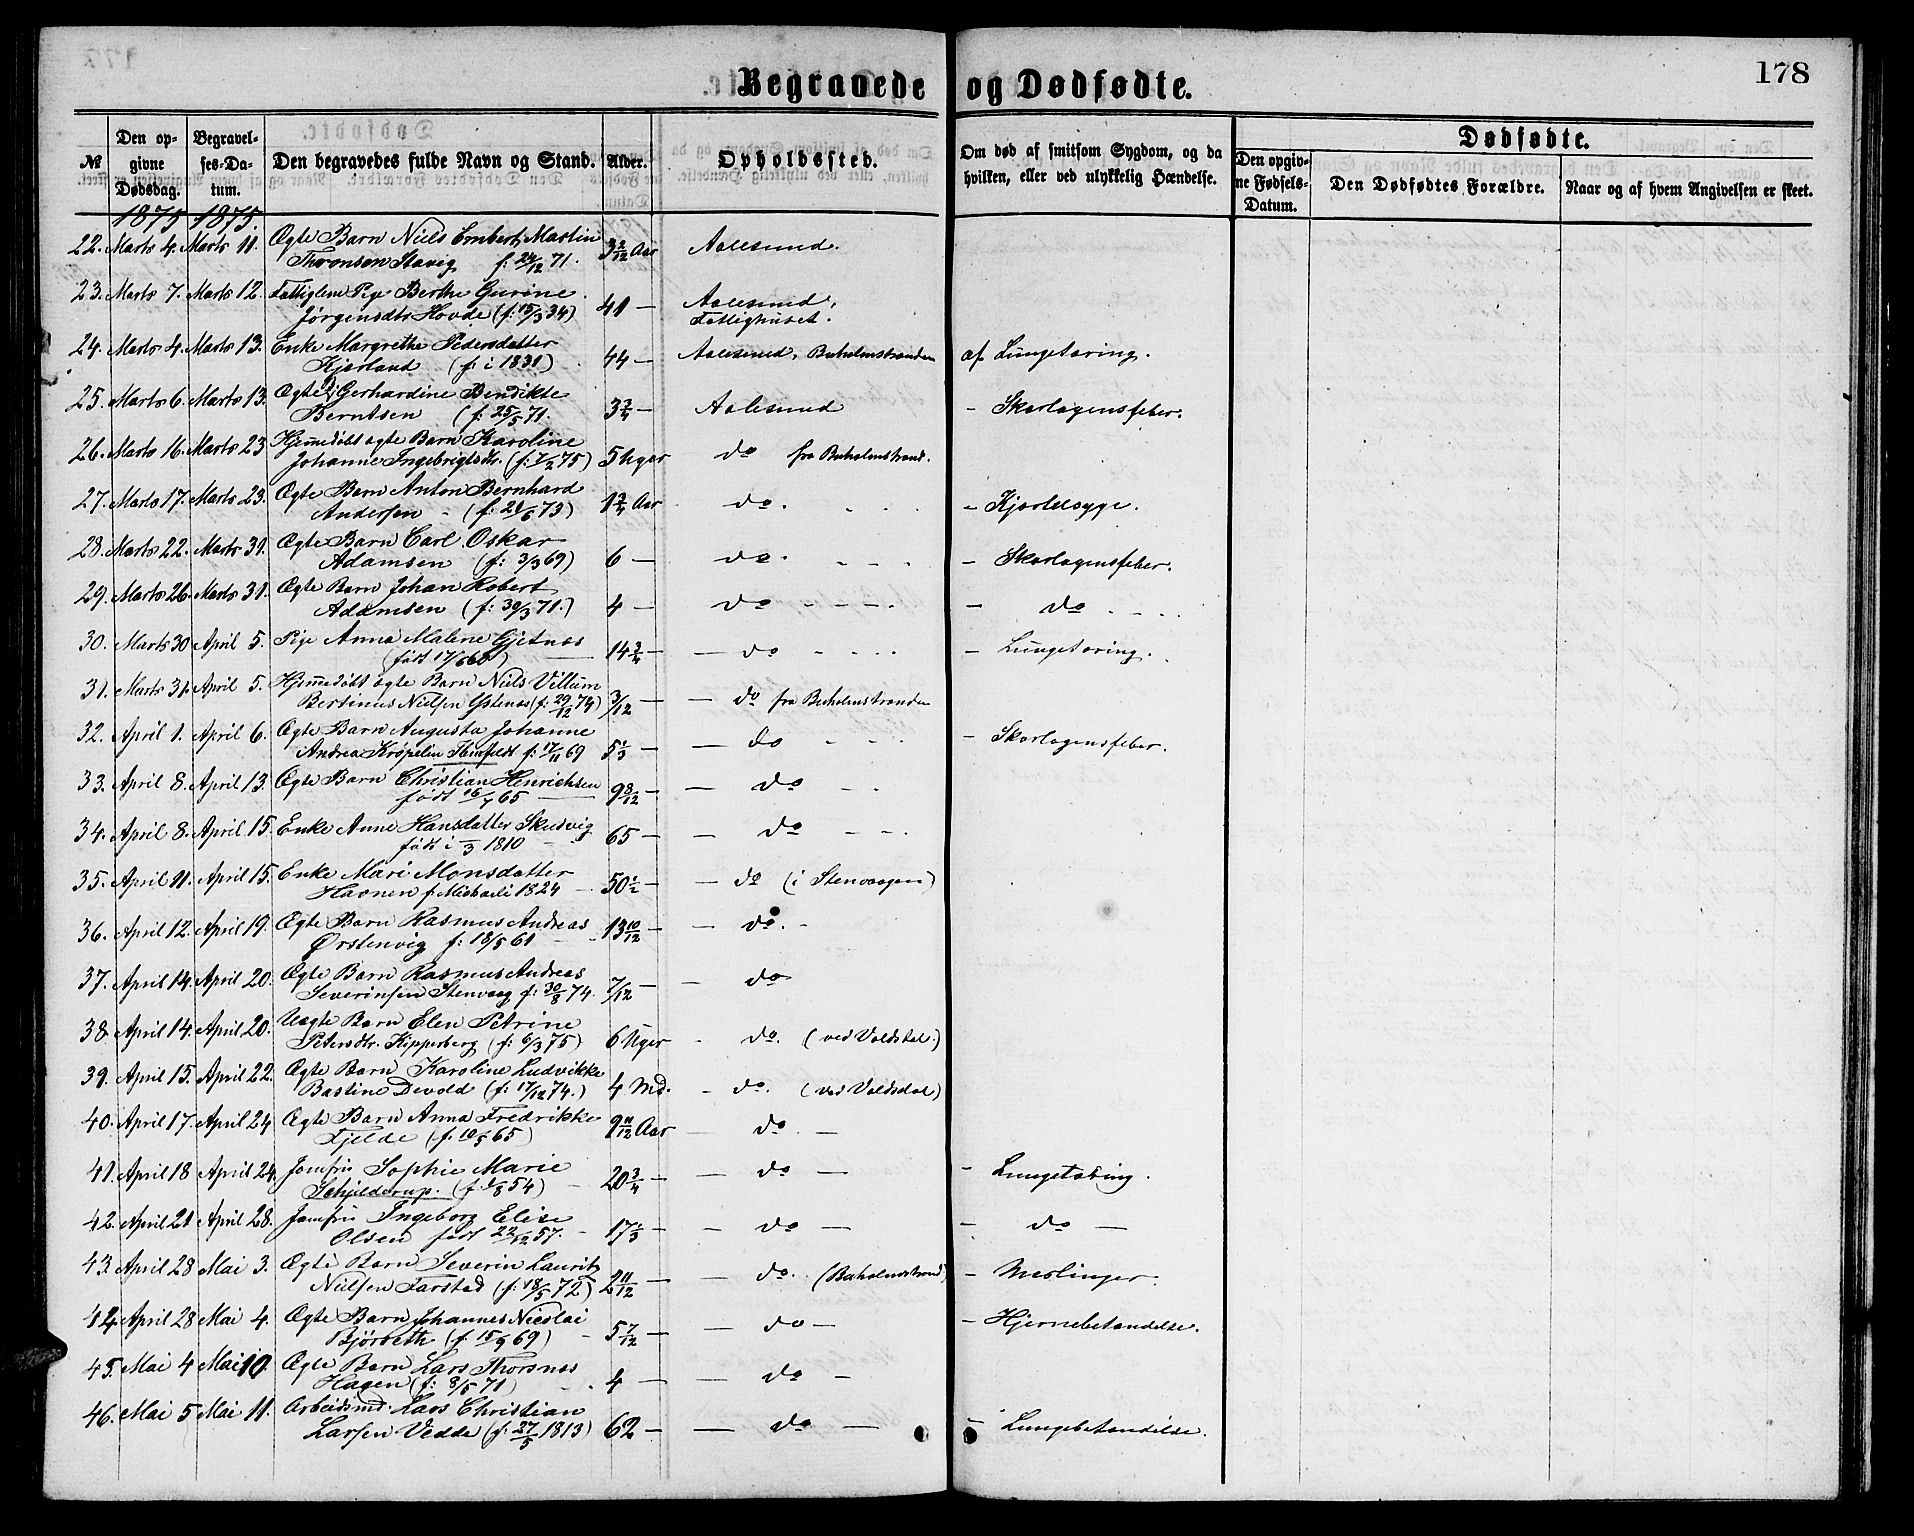 178
Begravede og Dødfødte.
№ Den opgivne Dødsdag. Begravelses-Datum. Den begravedes fulde Navn og Stand. Alder. Opholdssted. Om død af smitsom Sygdom, og da hvilken, eller ved ulykkelig Hændelse. Dødfødte. Den opgivne Fødsels-Datum. Den Dødfødtes Forældre. Naar og af hvem Angivelsen er skeet.
1875 1875.
22. Marts 4. Marts 11. Ægte Barn Niels Embert Martin 3 2/12 Aar Aalesund.
Thronsen Stavig f: 24/12 71.
23. Marts 7. Marts 12. Fattiglem Pige Berthe Gurine 41 — Aalesund,
Jørgensdtr Hovde (f: 15/3 34) Fattighuset.
24. Marts 4. Marts 13. Enke Margrethe Pedersdatter 44 — Aalesund, Buholmstranden af Lungetæring.
Kjerland (f: i 1831)
25. Marts 6. Marts 13. Ægte B. Gerhardine Bendikte 3 3/4 — Aalesund - Skarlagensfeber.
Berntsen (f: 25/5 71.
26. Marts 16. Marts 23 Hjemmedøbt ægte Barn Karoline 5 Uger do fra Buholmstrand.
Johanne Ingebrigtsdtr. (f: 7/2 75)
27. Marts 17. Marts 23. Ægte Barn Anton Bernhard 1 3/4 Aar do. - Kjertelsyge.
Andersen - (f: 21/6 73)
28. Marts 22. Marts 31. Ægte Barn Carl Oskar 6 — do. - Skarlagensfeber.
Adamsen (f: 3/3 69)
29. Marts 26. Marts 31. Ægte Barn Johan Robert 4 — do - do
Adamsen (f: 30/3 71.)
30. Marts 30 April 5. Pige Anna Malene Gjetnæs 14 3/4 — do - Lungetæring.
(født 17/6 60)
31. Marts 31. April 5. Hjemmedøbt ægte Barn Niels Villum 3/12 — do fra Buholmstranden
Bertinus Nielsen Ystenæs (f: 29/12 74)
32. April 1. April 6. Ægte Barn Augusta Johanne 5 1/3 — do - Skarlagensfeber.
Andrea Krøpelin f: 17/11 69
33. April 8. April 13. Ægte Barn Christian Henrichsen 9 8/12 — do
født 16/7 65
34. April 8. April 15. Enke Anne Hansdatter Skudvig 65 — do
født i 3 1810
35. April 11. April 15. Enke Mari Monsdatter 50 1/2 — do (i Stenvaagen)
Havnen f. Michaeli 1824
36. April 12. April 19. Ægte Barn Rasmus Andreas 13 10/12 — do.
Ørstenvig f: 18/5 61
37. April 14. April 20. Ægte Barn Rasmus Andreas 7/12 — do
Severinsen Stenvaag f: 30/8 74.
38. April 14. April 20. Uægte Barn Elen Petrine 6 Uger do. (ved Voldsdal.)
Petersdtr. Kipperberg (f: 6/3 75)
39. April 15. April 22. Ægte Barn Karoline Ludvikke 4 Md. do. (ved Voldsdal)
Bastine Devold (f: 17/12 74.)
40. April 17. April 24. Ægte Barn Anna Fredrikke 9 11/12 Aar do.
Fjelde (f. 10/5 65)
41. April 18 April 24. Jomfru Sophie Marie 20 3/4 — do - Lungetæring.
Schjelderup. (f. 1/8 54)
42. April 21 April 28. Jomfru Ingeborg Elise 17 1/3 — do - do
Olsen født 22/12 57.
43. April 28 Mai 3. Ægte Barn Severin Laurits 2 11/12 — do. (Buholmstrand) - Meslinger.
Nielsen Farstad (f: 18/5 72)
44 April 28 Mai 4. Ægte Barn Johannes Nicolai 5 7/12 — do - Hjernebetændelse.
Bjørseth (f. 15/9 69)
45. Mai 4 Mai 10. Ægte Barn Lars Thorsnæs 4 — do
Hagen (f: 8/5 71)
46. Mai 5 Mai 11. Arbeidsmd. Lars Christian 62 — do - Lungebetændelse.
Larsen Vedde (f: 27/5 1813)